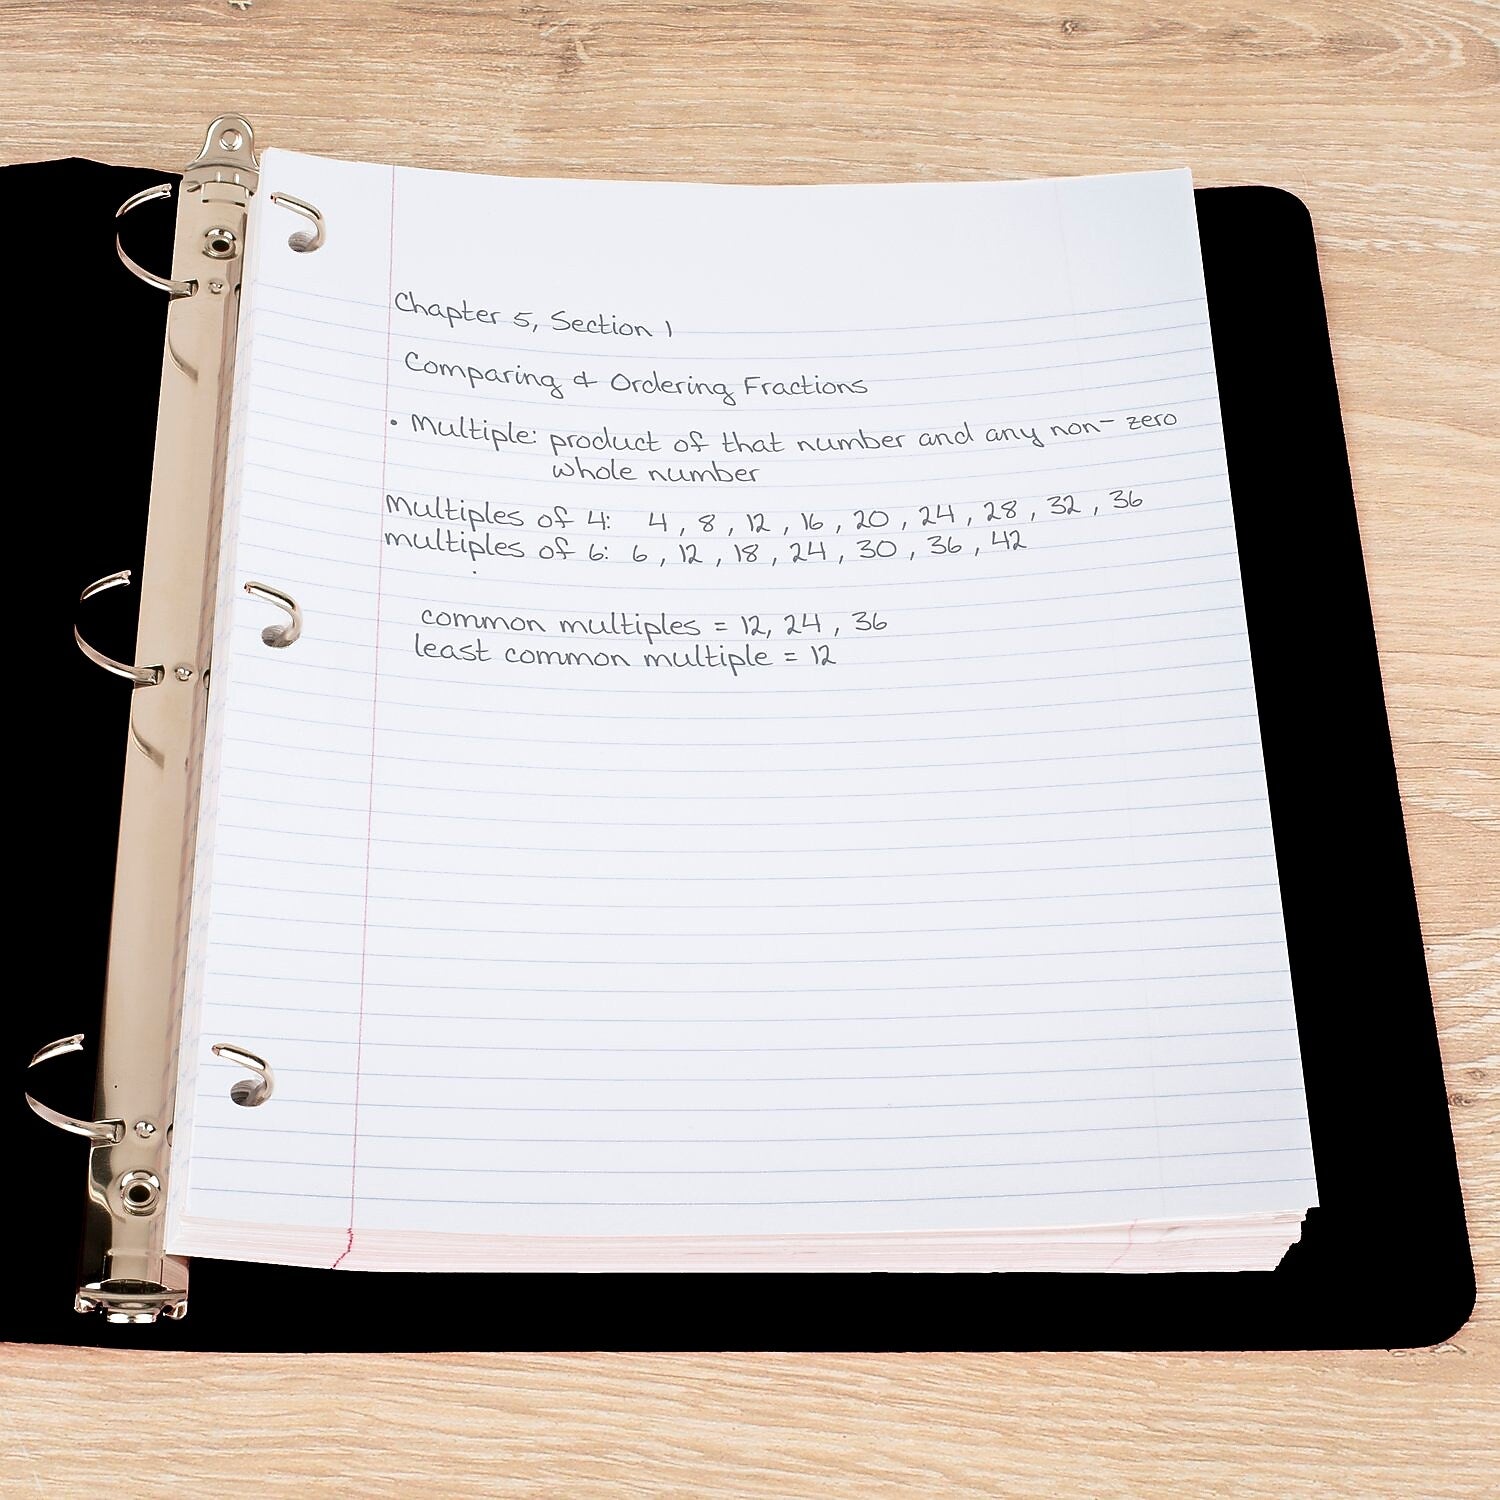 Chapter 5, Section 1
Comparing & Ordering Fractions
• Multiple: product of that number and any non-zero
whole number
Multiples of 4: 4, 8, 12, 16, 20, 24, 28, 32, 36
multiples of 6: 6, 12, 18, 24, 30, 36, 42
common multiples = 12, 24, 36
least common multiple = 12